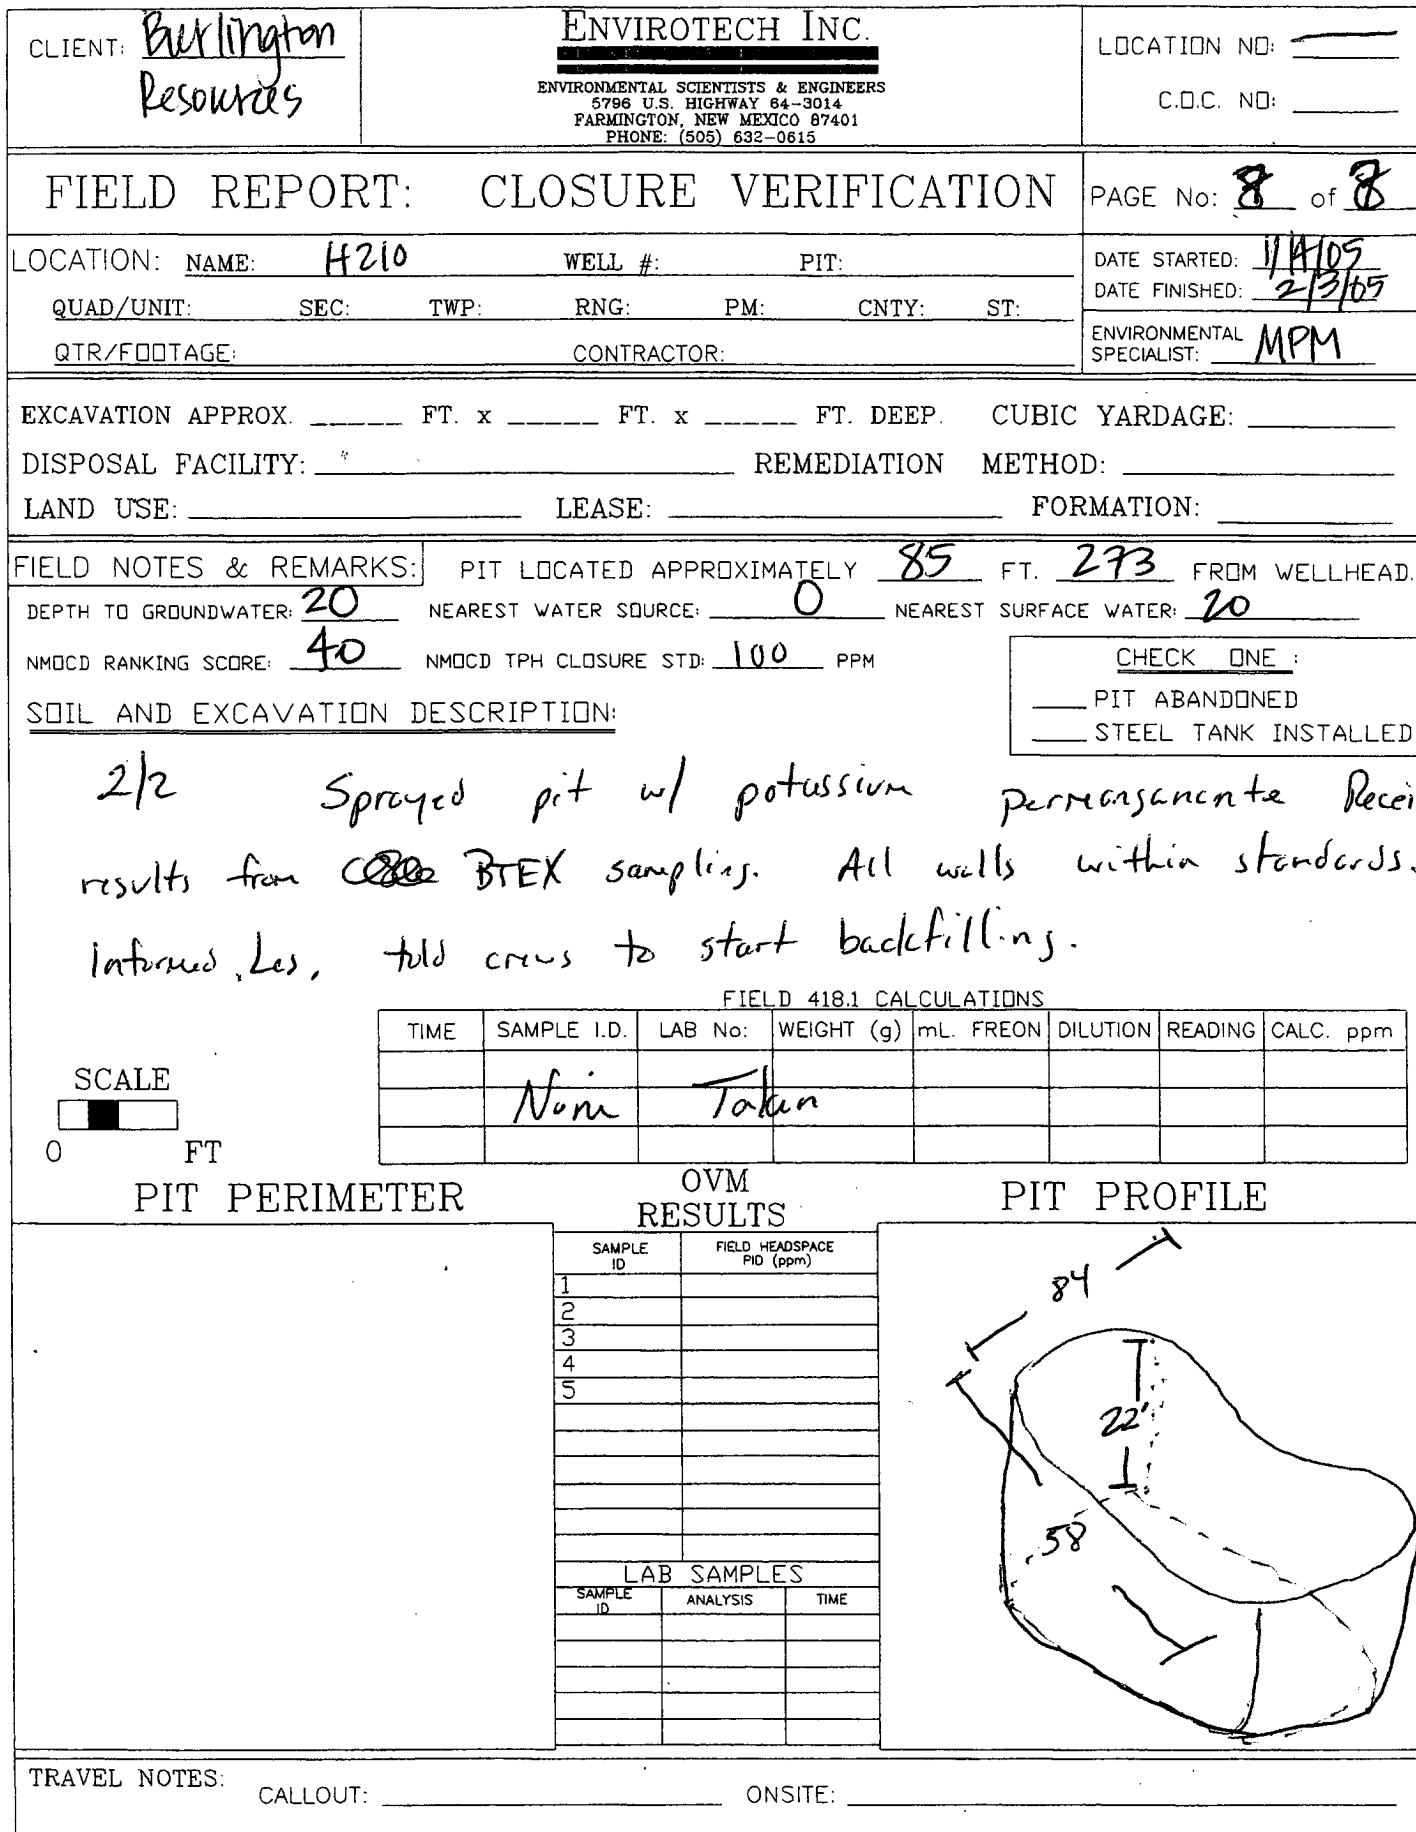 CLIENT: Burlington
Resources
ENVIROTECH INC.
ENVIRONMENTAL SCIENTISTS & ENGINEERS
5796 U.S. HIGHWAY 64-3014
FARMINGTON, NEW MEXICO 87401
PHONE: (505) 632-0615
LOCATION NO:
C.O.C. NO:
FIELD REPORT: CLOSURE VERIFICATION
PAGE No: 8 of 8
LOCATION: NAME: H210 WELL #: PIT:
QUAD/UNIT: SEC: TWP: RNG: PM: CNTY: ST:
QTR/FOOTAGE: CONTRACTOR:
DATE STARTED: 1/14/05
DATE FINISHED: 2/3/05
ENVIRONMENTAL
SPECIALIST: MPM
EXCAVATION APPROX. FT. x FT. x FT. DEEP. CUBIC YARDAGE:
DISPOSAL FACILITY: REMEDIATION METHOD:
LAND USE: LEASE: FORMATION:
FIELD NOTES & REMARKS: PIT LOCATED APPROXIMATELY 85 FT. 273 FROM WELLHEAD.
DEPTH TO GROUNDWATER: 20 NEAREST WATER SOURCE: 0 NEAREST SURFACE WATER: 20
NMOCD RANKING SCORE: 40 NMOCD TPH CLOSURE STD: 100 PPM
CHECK ONE :
PIT ABANDONED
STEEL TANK INSTALLED
SOIL AND EXCAVATION DESCRIPTION:
2/2 Sprayed pit w/ potassium permanganante Recei
results from BTEX sampling. All walls within standards.
Informed Les, told crews to start backfilling.
FIELD 418.1 CALCULATIONS
TIME SAMPLE I.D. LAB No: WEIGHT (g) mL. FREON DILUTION READING CALC. ppm
None Taken
SCALE
0 FT
PIT PERIMETER
OVM
RESULTS
PIT PROFILE
SAMPLE
ID
FIELD HEADSPACE
PID (ppm)
1
2
3
4
5
LAB SAMPLES
SAMPLE
ID
ANALYSIS
TIME
84
22'
58
TRAVEL NOTES: CALLOUT: ONSITE: